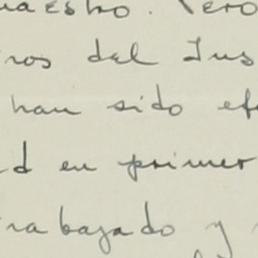 uaestro. Pero
ros del Ins
han sido efe
d en primer
rabajado y